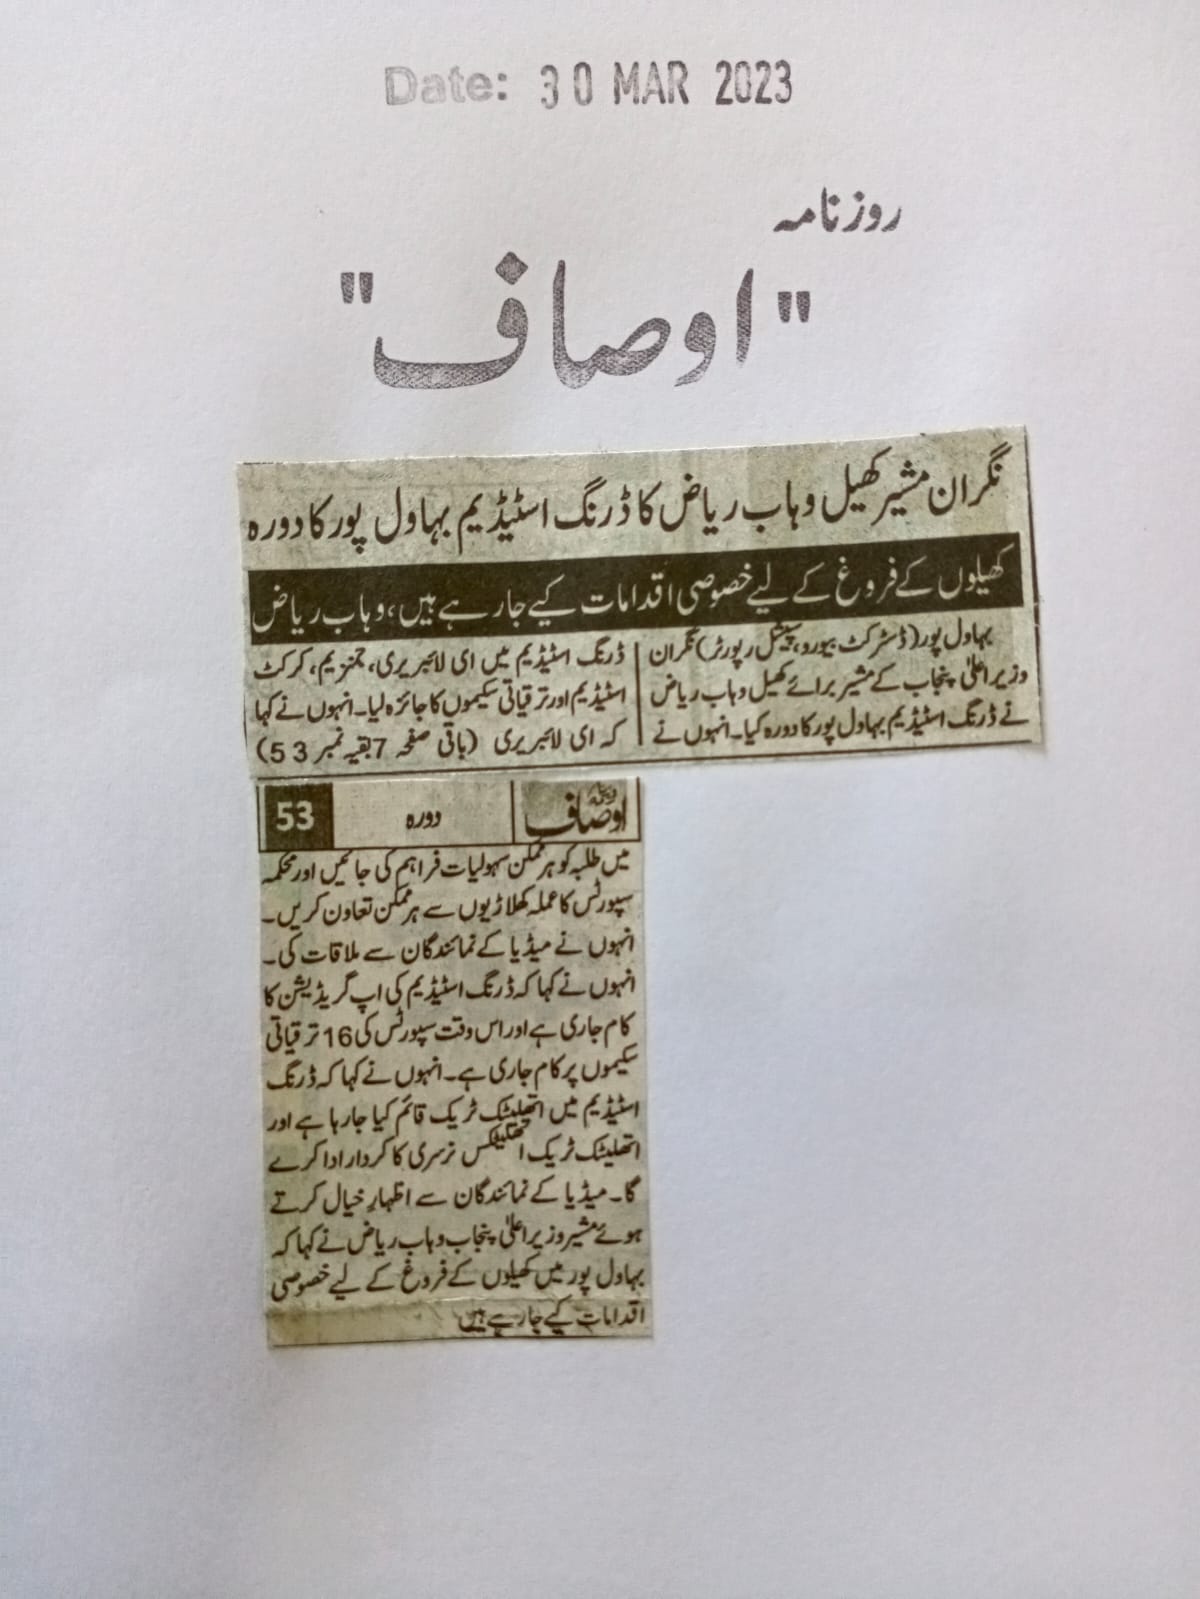 Date: 30 MAR 2023
روزنامہ
"اوصاف"
نگران مشیر کھیل وہاب ریاض کا ڈرنگ اسٹیڈیم بہاول پور کا دورہ
کھیلوں کے فروغ کے لیے خصوصی اقدامات کیے جا رہے ہیں، وہاب ریاض
بہاول پور (ڈسٹرکٹ بیورو، سپیشل رپورٹر) نگران
وزیراعلیٰ پنجاب کے مشیر برائے کھیل وہاب ریاض
نے ڈرنگ اسٹیڈیم بہاول پور کا دورہ کیا۔ انہوں نے
ڈرنگ اسٹیڈیم میں ای لائبریری، جمنزیم، کرکٹ
اسٹیڈیم اور ترقیاتی سکیموں کا جائزہ لیا۔ انہوں نے کہا
کہ ای لائبریری (باقی صفحہ 7 بقیہ نمبر 53)
اوصاف
دورہ
53
میں طلبہ کو ہر ممکن سہولیات فراہم کی جائیں اور محکمہ
سپورٹس کا عملہ کھلاڑیوں سے ہر ممکن تعاون کریں۔
انہوں نے میڈیا کے نمائندگان سے ملاقات کی۔
انہوں نے کہا کہ ڈرنگ اسٹیڈیم کی اپ گریڈیشن کا
کام جاری ہے اور اس وقت سپورٹس کی 16 ترقیاتی
سکیموں پر کام جاری ہے۔ انہوں نے کہا کہ ڈرنگ
اسٹیڈیم میں اتھلیٹک ٹریک قائم کیا جا رہا ہے اور
اتھلیٹک ٹریک اتھلیٹکس نرسری کا کردار ادا کرے
گا۔ میڈیا کے نمائندگان سے اظہارِ خیال کرتے
ہوئے مشیر وزیراعلیٰ پنجاب وہاب ریاض نے کہا کہ
بہاول پور میں کھیلوں کے فروغ کے لیے خصوصی
اقدامات کیے جا رہے ہیں